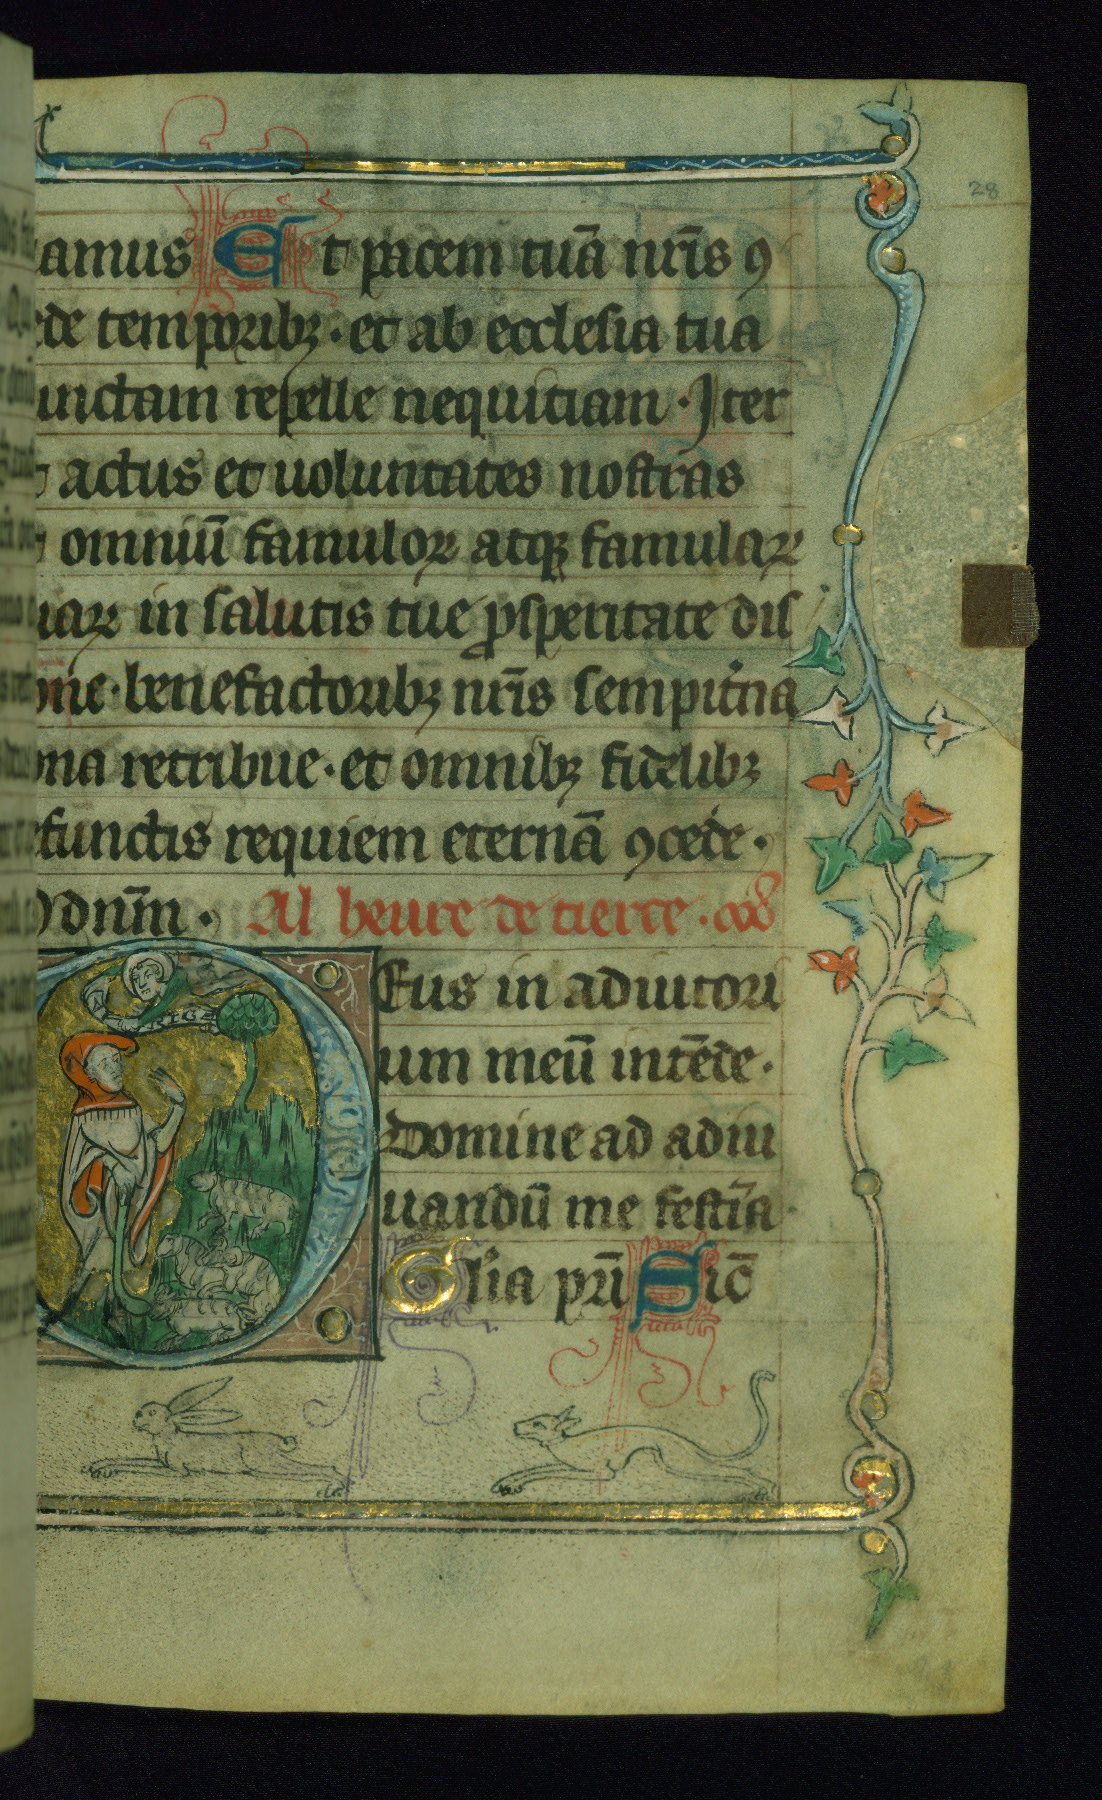 28
amus Et pacem tuā nr̄is ꝯ
ede temporibꝫ · et ab ecclesia tua
unctam repelle nequitiam · Iter
actus et uoluntates nostras
omniū famuloꝝ atqꝫ famulaꝝ
uaꝝ in salutis tue ꝓsperitate dis
one · benefactoribꝫ nr̄is sempit̾na
ona retribue · et omnibꝫ fidelibꝫ
efunctis requiem eternā ꝯcede ·
dnm̄ · Al heure de tierce ·
Eus in adiutori
um meū intēde ·
Domine ad adiu
uandū me festīa ·
Gl̄ia pr̄i Sic̄